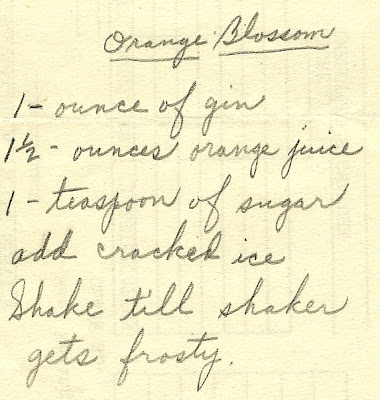 Orange Blossom
1 - ounce of gin
1½ - ounces orange juice
1 - teaspoon of sugar
add cracked ice
Shake till shaker
gets frosty.